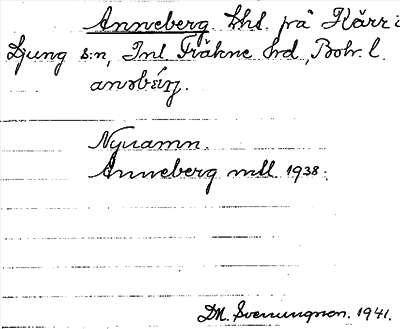 Anneberg. lhl. på Kärr i
Ljung s:n, Inl Fräkne hd, Boh. l.
anəbærj.
Nynamn.
Anneberg mtl. 1938.
DM. Svenungson. 1941.